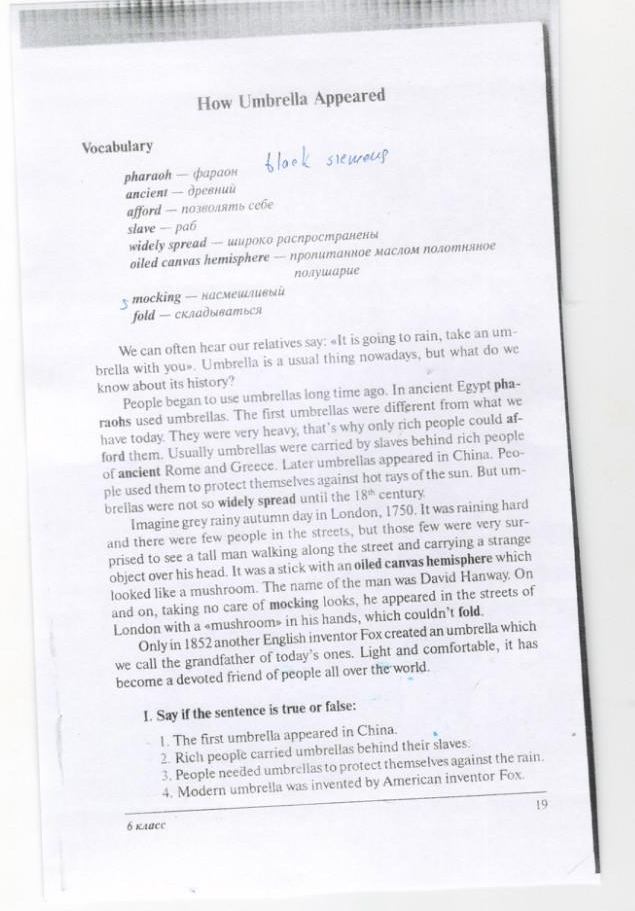 How Umbrella Appeared
Vocabulary
pharaoh — фараон
ancient — древний
afford — позволять себе
slave — раб
widely spread — широко распространены
oiled canvas hemisphere — пропитанное маслом полотняное
полушарие
mocking — насмешливый
fold — складываться
We can often hear our relatives say: «It is going to rain, take an um-
brella with you». Umbrella is a usual thing nowadays, but what do we
know about its history?
People began to use umbrellas long time ago. In ancient Egypt pha-
raohs used umbrellas. The first umbrellas were different from what we
have today. They were very heavy, that's why only rich people could af-
ford them. Usually umbrellas were carried by slaves behind rich people
of ancient Rome and Greece. Later umbrellas appeared in China. Peo-
ple used them to protect themselves against hot rays of the sun. But um-
brellas were not so widely spread until the 18th century.
Imagine grey rainy autumn day in London, 1750. It was raining hard
and there were few people in the streets, but those few were very sur-
prised to see a tall man walking along the street and carrying a strange
object over his head. It was a stick with an oiled canvas hemisphere which
looked like a mushroom. The name of the man was David Hanway. On
and on, taking no care of mocking looks, he appeared in the streets of
London with a «mushroom» in his hands, which couldn't fold.
Only in 1852 another English inventor Fox created an umbrella which
we call the grandfather of today's ones. Light and comfortable, it has
become a devoted friend of people all over the world.
I. Say if the sentence is true or false:
1. The first umbrella appeared in China.
2. Rich people carried umbrellas behind their slaves.
3. People needed umbrellas to protect themselves against the rain.
4. Modern umbrella was invented by American inventor Fox.
19
6 класс